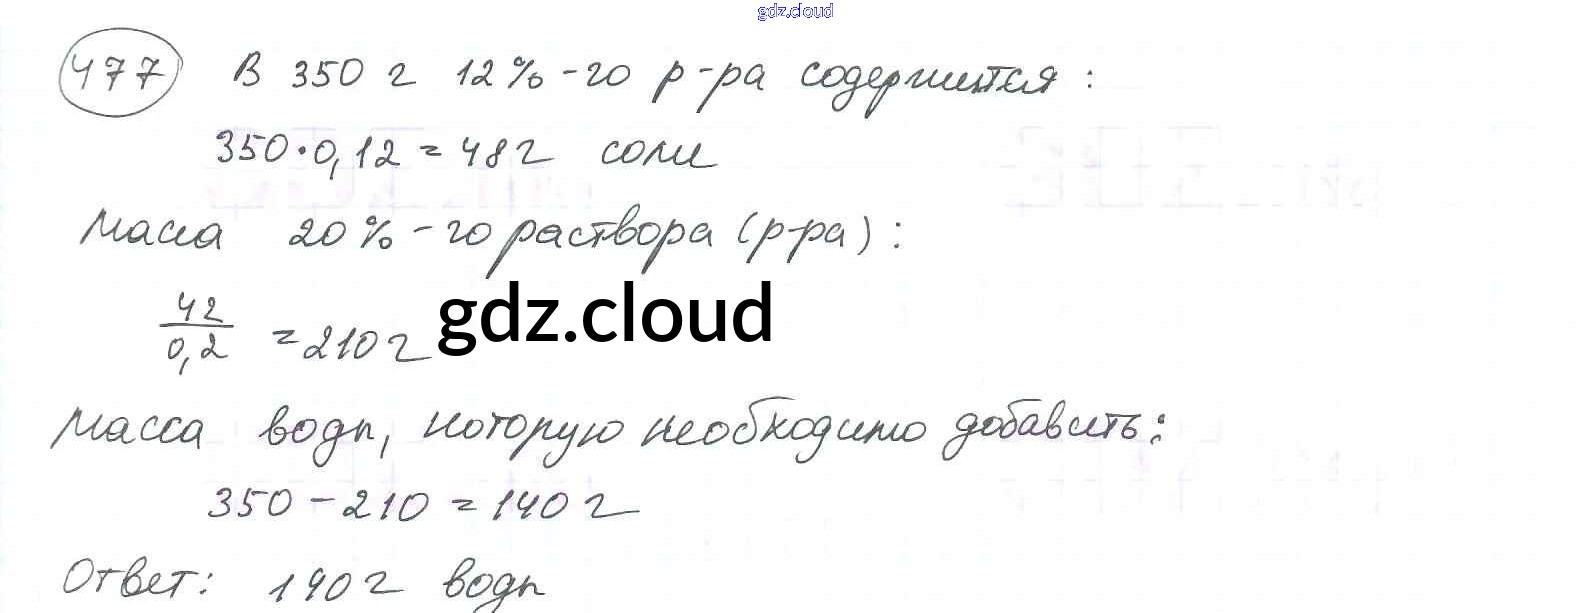 gdz.cloud
477 В 350 г 12%-го р-ра содержится:
350·0,12=48г соли
Масса 20%-го раствора (р-ра):
42/0,2 =210г
gdz.cloud
Масса воды, которую необходимо добавить:
350-210=140г
Ответ: 140г воды